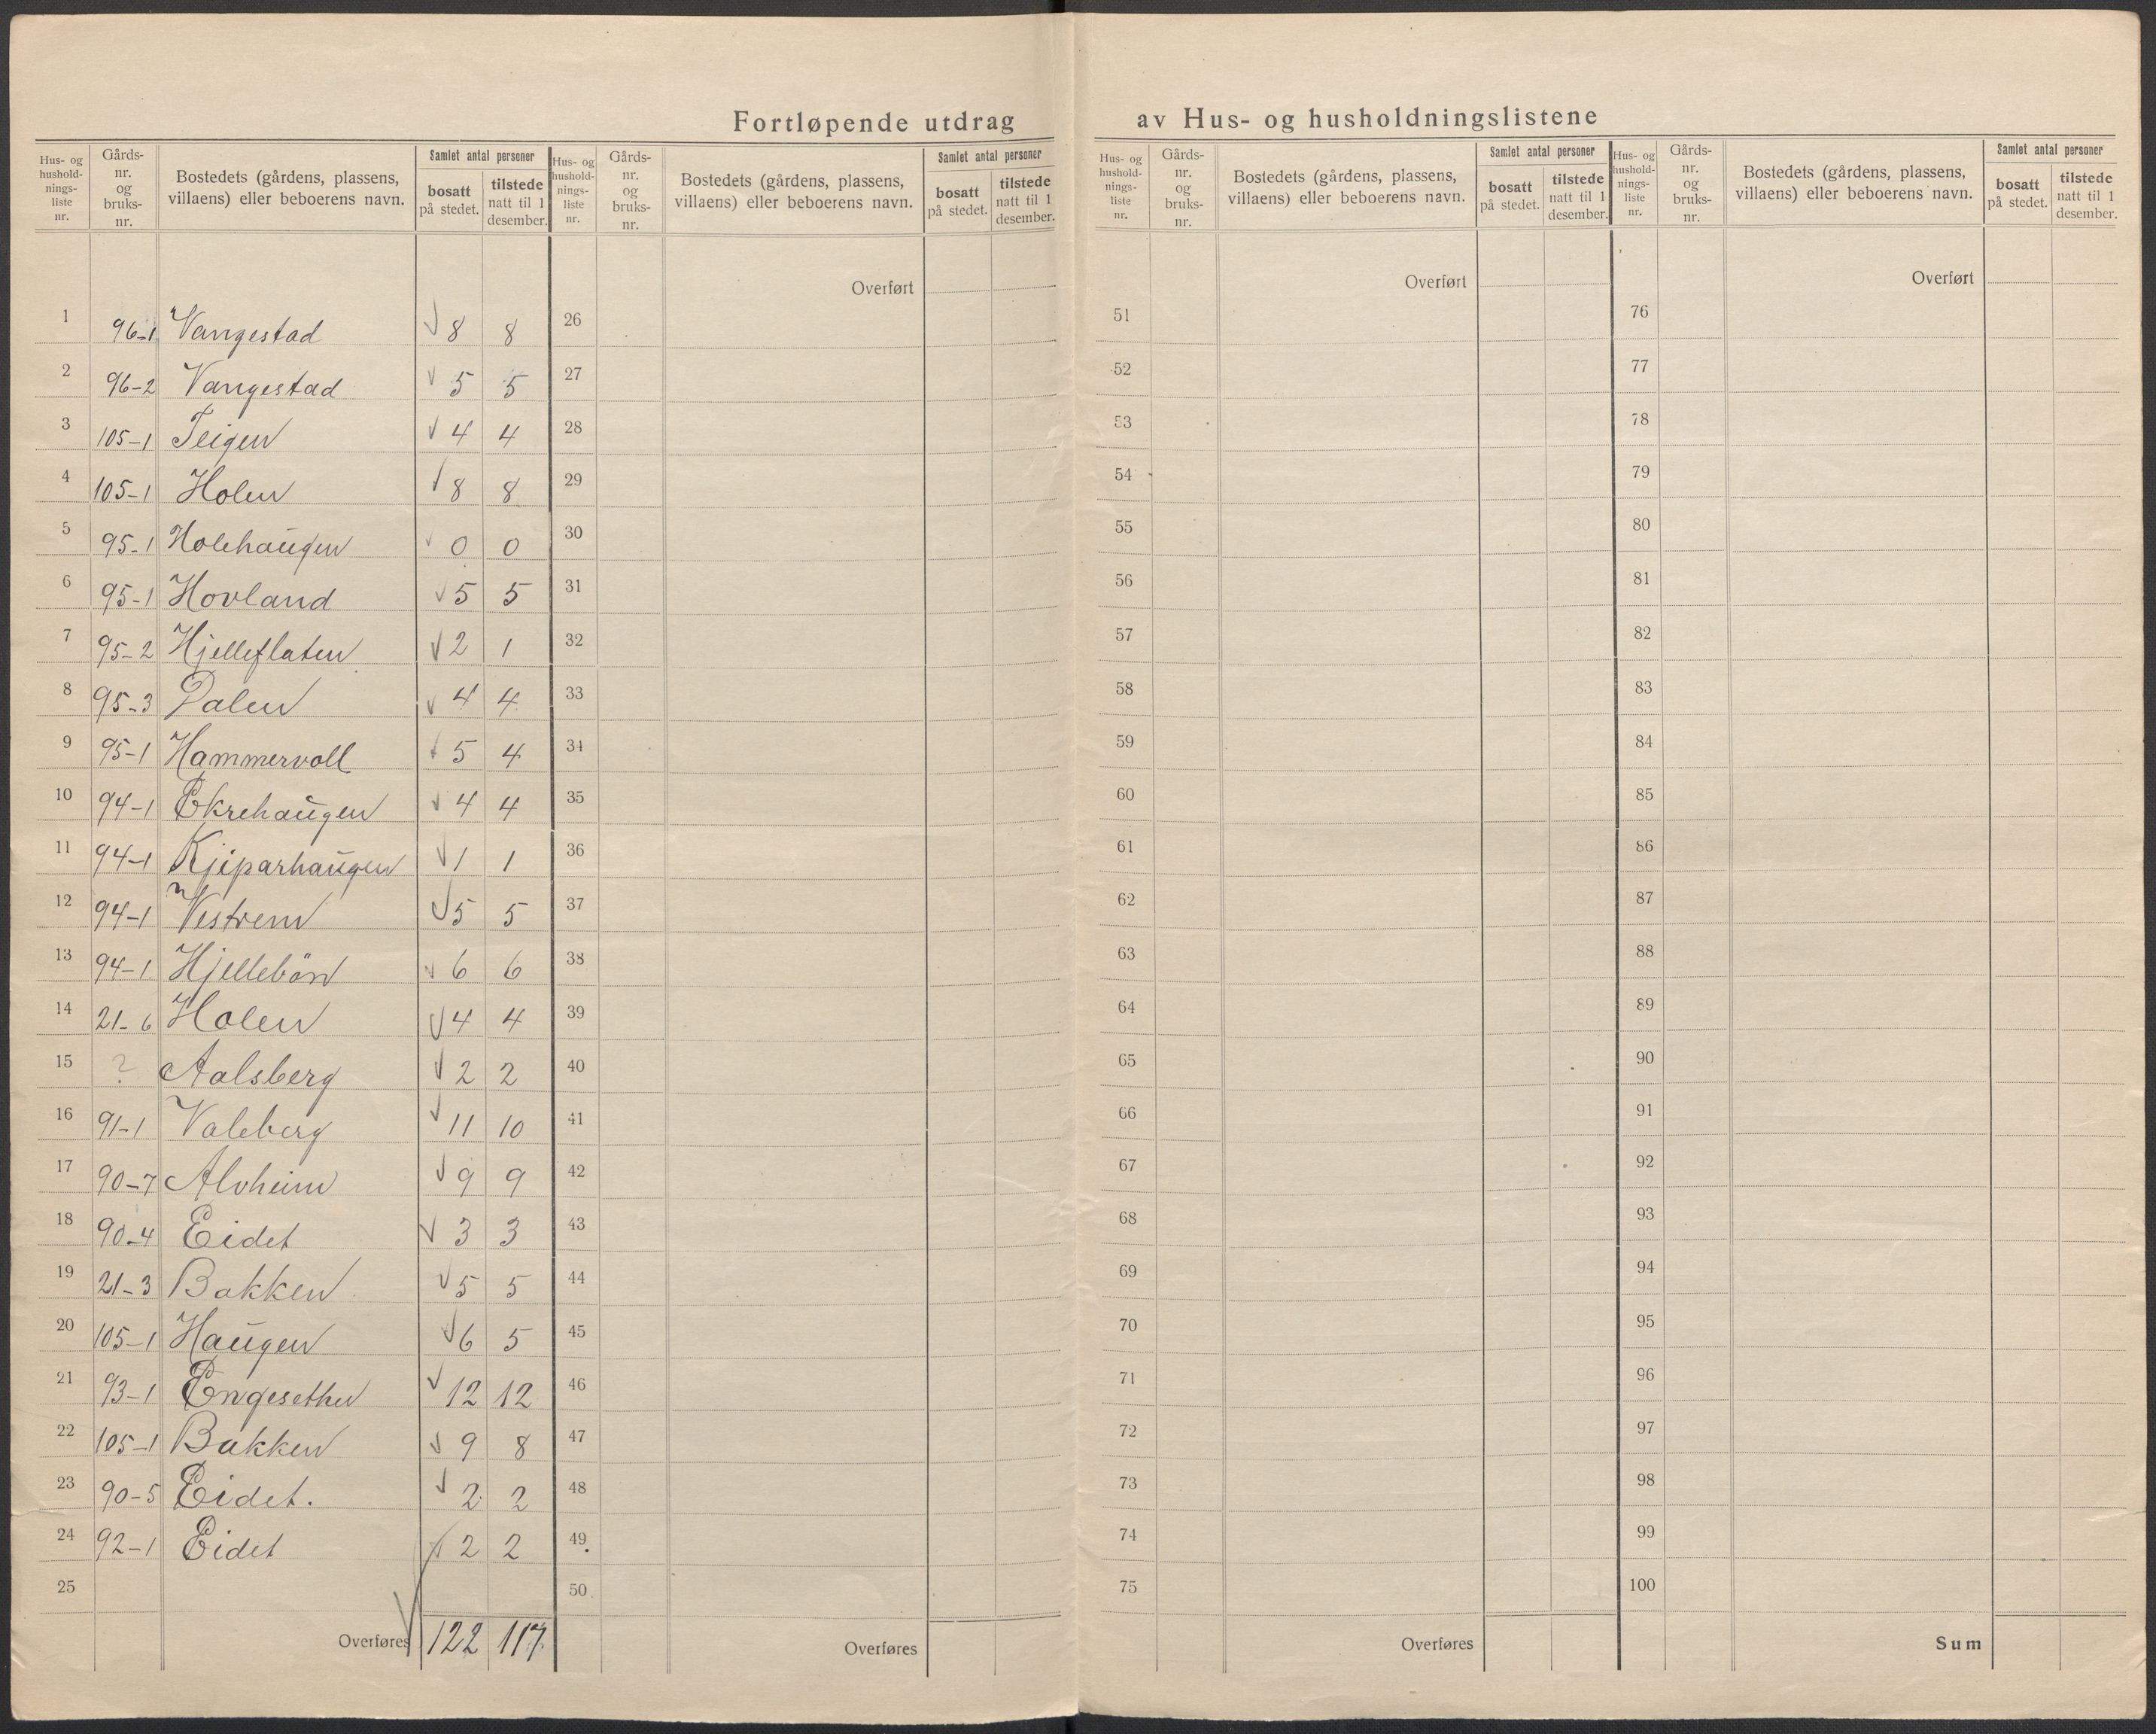 Fortløpende utdrag av Hus- og husholdningslistene
Hus- og hushold-nings-liste nr. | Gårds-nr. og bruks-nr. | Bostedets (gårdens, plassens, villaens) eller beboerens navn. | Samlet antal personer | bosatt på stedet. | tilstede natt til 1 desember.
Hus- og hushold-nings-liste nr. | Gårds-nr. og bruks-nr. | Bostedets (gårdens, plassens, villaens) eller beboerens navn. | Samlet antal personer | bosatt på stedet. | tilstede natt til 1 desember.
Hus- og hushold-nings-liste nr. | Gårds-nr. og bruks-nr. | Bostedets (gårdens, plassens, villaens) eller beboerens navn. | Samlet antal personer | bosatt på stedet. | tilstede natt til 1 desember.
Hus- og hushold-nings-liste nr. | Gårds-nr. og bruks-nr. | Bostedets (gårdens, plassens, villaens) eller beboerens navn. | Samlet antal personer | bosatt på stedet. | tilstede natt til 1 desember.
Overført Overført Overført
1 96-1 Vangestad 8 8 26 51 76
2 96-2 Vangestad 5 5 27 52 77
3 105-1 Teigen 4 4 28 53 78
4 105-1 Holen 8 8 29 54 79
5 95-1 Holehaugen 0 0 30 55 80
6 95-1 Hovland 5 5 31 56 81
7 95-2 Hjelleflaten 2 1 32 57 82
8 95-3 Dalen 4 4 33 58 83
9 95-1 Hammervoll 5 4 34 59 84
10 94-1 Ekrehaugen 4 4 35 60 85
11 94-1 Kjiparhaugen 1 1 36 61 86
12 94-1 Vestrem 5 5 37 62 87
13 94-1 Hjellebön 6 6 38 63 88
14 21-6 Holen 4 4 39 64 89
15 ? Aalsberg 2 2 40 65 90
16 91-1 Valeberg 11 10 41 66 91
17 90-7 Alvheim 9 9 42 67 92
18 90-4 Eidet 3 3 43 68 93
19 21-3 Bakken 5 5 44 69 94
20 105-1 Haugen 6 5 45 70 95
21 93-1 Engesether 12 12 46 71 96
22 105-1 Bakken 9 8 47 72 97
23 90-5 Eidet. 2 2 48 73 98
24 92-1 Eidet 2 2 49 74 99
25 50 75 100
Overføres 122 117 Overføres Overføres Sum